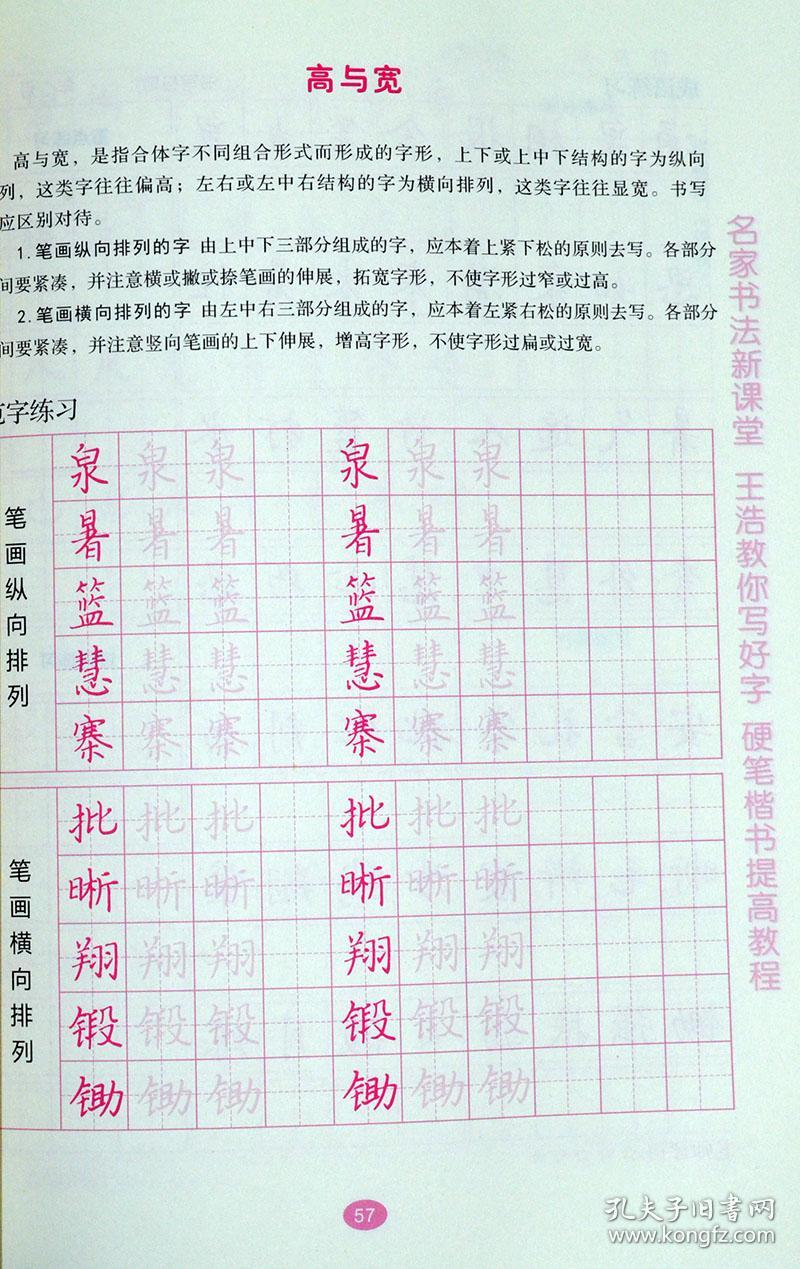 高与宽
高与宽，是指合体字不同组合形式而形成的字形，上下或上中下结构的字为纵向
列，这类字往往偏高；左右或左中右结构的字为横向排列，这类字往往显宽。书写
应区别对待。
1.笔画纵向排列的字 由上中下三部分组成的字，应本着上紧下松的原则去写。各部分
间要紧凑，并注意横或撇或捺笔画的伸展，拓宽字形，不使字形过窄或过高。
2.笔画横向排列的字 由左中右三部分组成的字，应本着左紧右松的原则去写。各部分
间要紧凑，并注意竖向笔画的上下伸展，增高字形，不使字形过扁或过宽。
范字练习
笔画纵向排列
泉 泉 泉 泉 泉 泉
暑 暑 暑 暑 暑 暑
篮 篮 篮 篮 篮 篮
慧 慧 慧 慧 慧 慧
寨 寨 寨 寨 寨 寨
笔画横向排列
批 批 批 批 批 批
晰 晰 晰 晰 晰 晰
翔 翔 翔 翔 翔 翔
锻 锻 锻 锻 锻 锻
锄 锄 锄 锄 锄 锄
名家书法新课堂 王浩教你写好字 硬笔楷书提高教程
57
孔夫子旧书网
www.kongfz.com